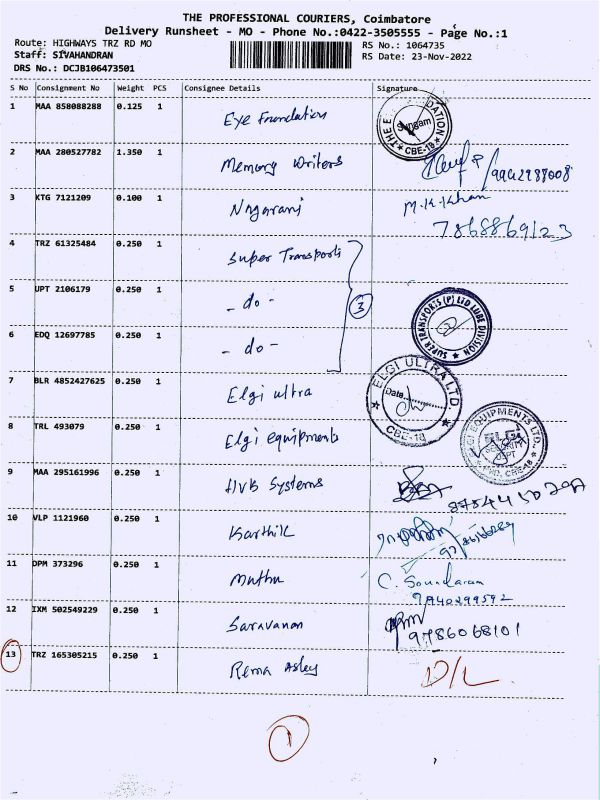 THE PROFESSIONAL COURIERS, Coimbatore
Delivery Runsheet - MO - Phone No.:0422-3505555 - Page No.:1
Route: HIGHWAYS TRZ RD MO
RS No.: 1064735
Staff: SIVAHANDRAN
RS Date: 23-Nov-2022
DRS No.: DCJB106473501
S No Consignment No Weight PCS Consignee Details Signature
1 MAA 858088288 0.125 1 Eye Foundation
THE E DATION Sungam CBE-18
2 MAA 280527782 1.350 1 Memory Writers
3 KTG 7121209 0.100 1 Nagarani M.K.Khan
7868869123
4 TRZ 61325484 0.250 1 Super Transports
5 UPT 2106179 0.250 1 - do - 3
SUPER TRANSPORTS (P) LTD LUBE DIVISION
6 EDQ 12697785 0.250 1 - do -
7 BLR 4852427625 0.250 1 Elgi ultra
ELGI ULTRA LTD Date CBE-18
8 TRL 493079 0.250 1 Elgi equipments
GI EQUIPMENTS LTD., ELGi SECURITY DEPT CBE-18
9 MAA 295161996 0.250 1 HVB Systems
10 VLP 1121960 0.250 1 Karthik
11 DPM 373296 0.250 1 Muthu C. Soundaran
9840299592
12 IXM 502549229 0.250 1 Saravanan
9786068101
13 TRZ 165305215 0.250 1 Rema Asley D/L
1